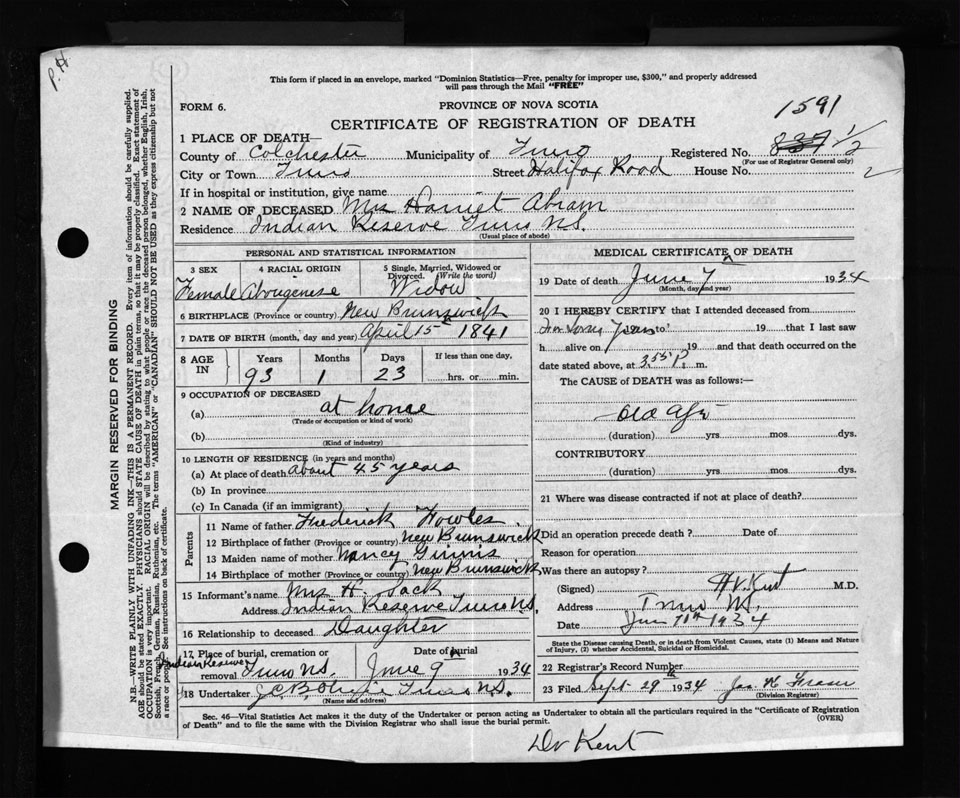 P. H
This form if placed in an envelope, marked "Dominion Statistics—Free, penalty for improper use, $300," and properly addressed
will pass through the Mail "FREE"
FORM 6.
PROVINCE OF NOVA SCOTIA
1591
CERTIFICATE OF REGISTRATION OF DEATH
1 PLACE OF DEATH—
County of Colchester Municipality of Truro Registered No. 837 1/2
(For use of Registrar General only)
City or Town Truro Street Halifax Road House No. 2
If in hospital or institution, give name
2 NAME OF DECEASED Mrs Harriet Abram
Residence Indian Reserve Truro N.S.
(Usual place of abode)
PERSONAL AND STATISTICAL INFORMATION
3 SEX 4 RACIAL ORIGIN 5 Single, Married, Widowed or
Divorced. (Write the word)
Female Abrougenese Widow
6 BIRTHPLACE (Province or country) New Brunswick
7 DATE OF BIRTH (month, day and year) April 15th 1841
8 AGE IN Years Months Days If less than one day,
93 1 23 hrs. or min.
9 OCCUPATION OF DECEASED
(a) at home
(Trade or occupation or kind of work)
(b)
(Kind of industry)
10 LENGTH OF RESIDENCE (in years and months)
(a) At place of death about 45 years
(b) In province
(c) In Canada (if an immigrant)
Parents
11 Name of father Frederick Fowles
12 Birthplace of father (Province or country) New Brunswick
13 Maiden name of mother Nancy Ginnis
14 Birthplace of mother (Province or country) New Brunswick
15 Informant's name Mrs H. Jack
Address Indian Reserve Truro N.S.
16 Relationship to deceased Daughter
17 Place of burial, cremation or removal Date of burial
Indian Reserve Truro N.S. June 9th 1934
18 Undertaker Truro N.S.
(Name and address)
MEDICAL CERTIFICATE OF DEATH
19 Date of death June 7th 1934
(Month, day and year)
20 I HEREBY CERTIFY that I attended deceased from
for years to 19 that I last saw
h alive on 19 and that death occurred on the
date stated above, at 3.55 P. m.
The CAUSE of DEATH was as follows:—
Old Age
(duration) yrs mos dys.
CONTRIBUTORY
(duration) yrs mos dys.
21 Where was disease contracted if not at place of death?
Did an operation precede death? Date of
Reason for operation
Was there an autopsy?
(Signed) H.V. Kent M.D.
Address Truro N.S.
Date June 7th 1934
State the Disease causing Death, or in death from Violent Causes, state (1) Means and Nature
of Injury, (2) whether Accidental, Suicidal or Homicidal.
22 Registrar's Record Number
23 Filed Sept 29th 1934 Jas. K Fraser
(Division Registrar)
Sec. 46—Vital Statistics Act makes it the duty of the Undertaker or person acting as Undertaker to obtain all the particulars required in the "Certificate of Registration
of Death" and to file the same with the Division Registrar who shall issue the burial permit. (OVER)
Dr Kent
MARGIN RESERVED FOR BINDING
N.B.—WRITE PLAINLY WITH UNFADING INK—THIS IS A PERMANENT RECORD. Every item of information should be carefully supplied.
AGE should be stated EXACTLY. PHYSICIANS should STATE CAUSE OF DEATH in plain terms, so that it may be properly classified. Exact statement of
OCCUPATION is very important. RACIAL ORIGIN will be described by stating to what people or race the deceased person belonged, whether English, Irish,
Scottish, French, German, Russian, Ruthenian, etc. The terms "AMERICAN" or "CANADIAN" SHOULD NOT BE USED as they express citizenship but not
a race or people. See instructions on back of certificate.